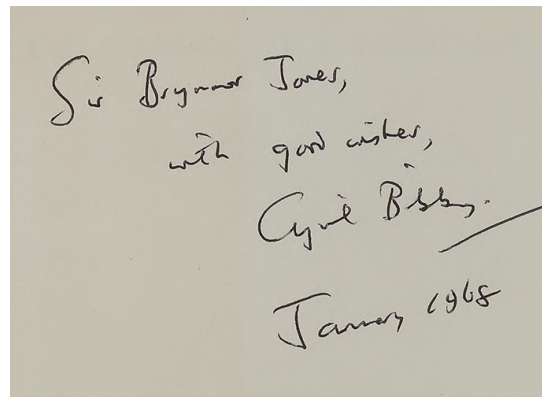 Sir Brynmor Jones,
with good wishes,
Cyril Bibby.
January 1968